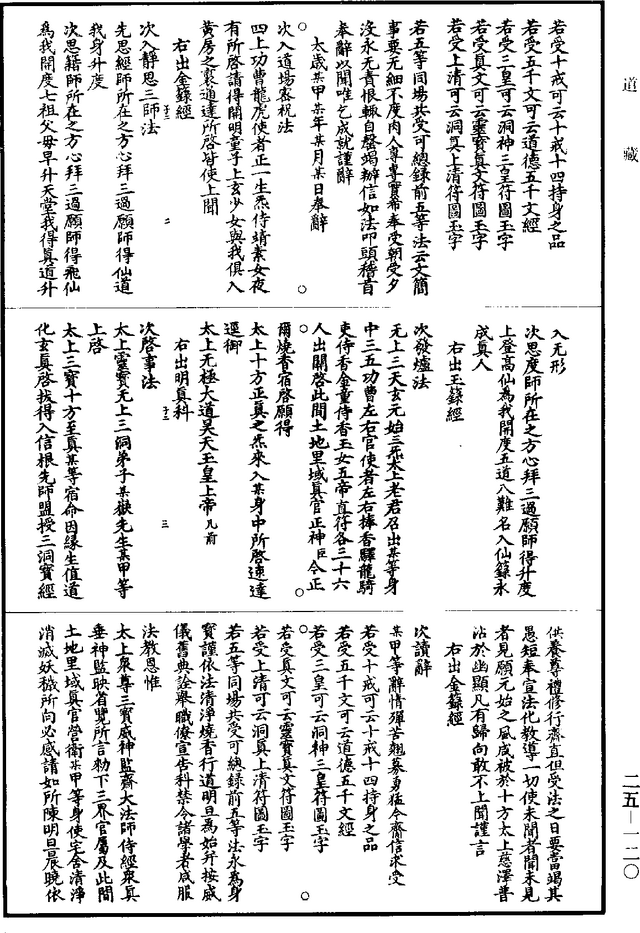 道藏
若受十戒可云十戒十四持身之品
若受五千文可云道德五千文經
若受三皇可云洞神三皇符圖玉字
若受真文可云靈寶真文符圖玉字
若受上清可云洞真上清符圖玉字
若五等同場共受可總錄前五等法云文簡
事要无細不度肉人尊專寶希奉受朝受夕
沒永无責恨輙自罄竭辦信如法叩頭稽首
奉辭以聞唯乞成就謹辭
太歲某甲某年某月某日奉辭
次入道場密祝法
四上功曹龍虎使者正一生炁侍靖素女夜
有所啓請得開明童子上玄少女與我俱入
黃房之裏通達所啓皆使上聞
右出金籙經
次入靜思三師法
先思經師所在之方心拜三過願師得仙道
我身升度
次思籍師所在之方心拜三過願師得飛仙
爲我開度七祖父母早升天堂我得真道升
二
入无形
次思度師所在之方心拜三過願師得升度
上登高仙爲我開度五道八難名入仙籙永
成真人
右出玉籙經
次發爐法
无上三天玄元始三炁太上老君召出某等身
中三五功曹左右官使者左右捧香驛龍騎
吏侍香金童侍香玉女五帝直符各三十六
人出關啓此間土地里域真官正神臣今正
爾燒香宿啓願得
太上十方正真之炁來入某身中所啓速達
逕御
太上无極大道昊天玉皇上帝几前
右出明真科
次啓事法
太上靈寶无上三洞弟子某嶽先生某甲等
上啓
太上三寶十方至真某等宿命因緣生值道
化玄真啓拔得入信根先師盟授三洞寶經
三
供養尊禮修行齋直但受法之日要當竭其
愚短奉宣法化教導一切使未聞者聞未見
者見願元始之風咸被於十方太上慈澤普
沾於幽顯凡有歸向敢不上聞謹言
右出金籙經
次讀辭
某甲等辭情殫苦翹慕勇猛今齋信求受
若受十戒可云十戒十四持身之品
若受五千文可云道德五千文經
若受三皇可云洞神三皇符圖玉字
若受真文可云靈寶真文符圖玉字
若受上清可云洞真上清符圖玉字
若五等同場共受可總錄前五等法永爲身
寶謹依法清淨燒香行道明旦爲始升按威
儀舊典詮舉職僚宣告科禁令諸學者咸服
法教恩惟
太上衆尊三寶威神監齋大法師侍經衆真
垂神監映省覽所言勑下三界官屬及此間
土地里域真官營衛某甲等身使宅舍清淨
消滅妖穢所向必感請如所陳明旦晨曉依
二五—一二〇